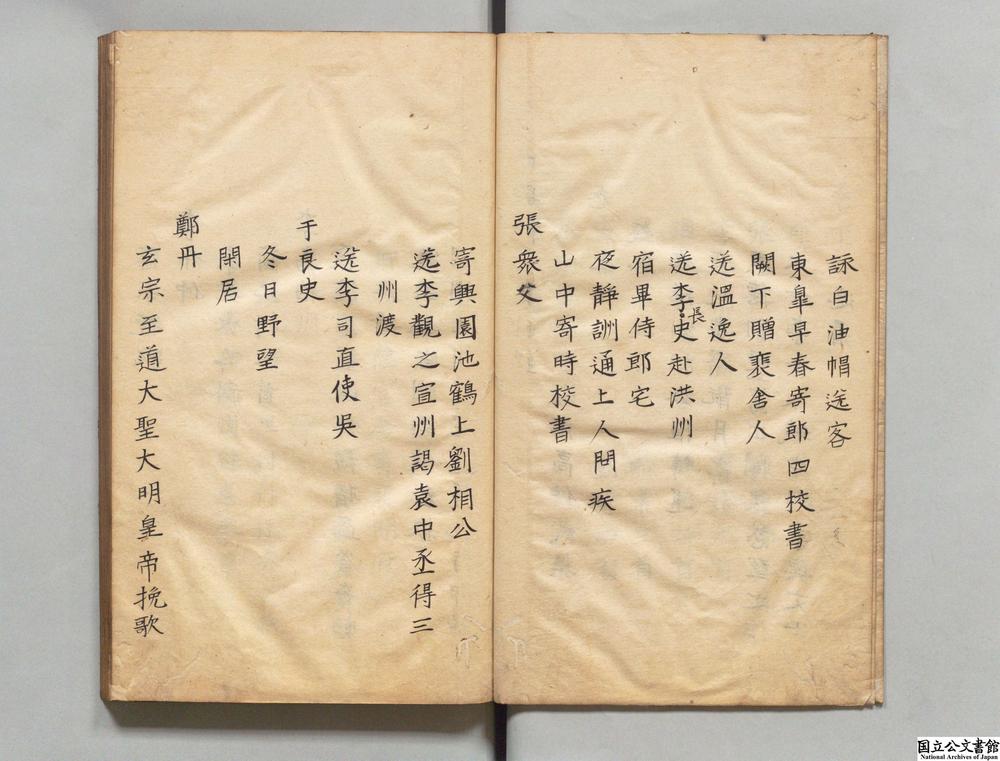 詠白油帽送客
東皐早春寄郎四校書
闕下贈裵舍人
送溫逸人
送李長史赴洪州
宿畢侍郎宅
夜靜詶通上人問疾
山中寄時校書
張衆父
寄興園池鶴上劉相公
送李觀之宣州謁袁中丞得三
州渡
送李司直使吳
于良史
冬日野望
閑居
鄭丹
玄宗至道大聖大明皇帝挽歌
国立公文書館
National Archives of Japan